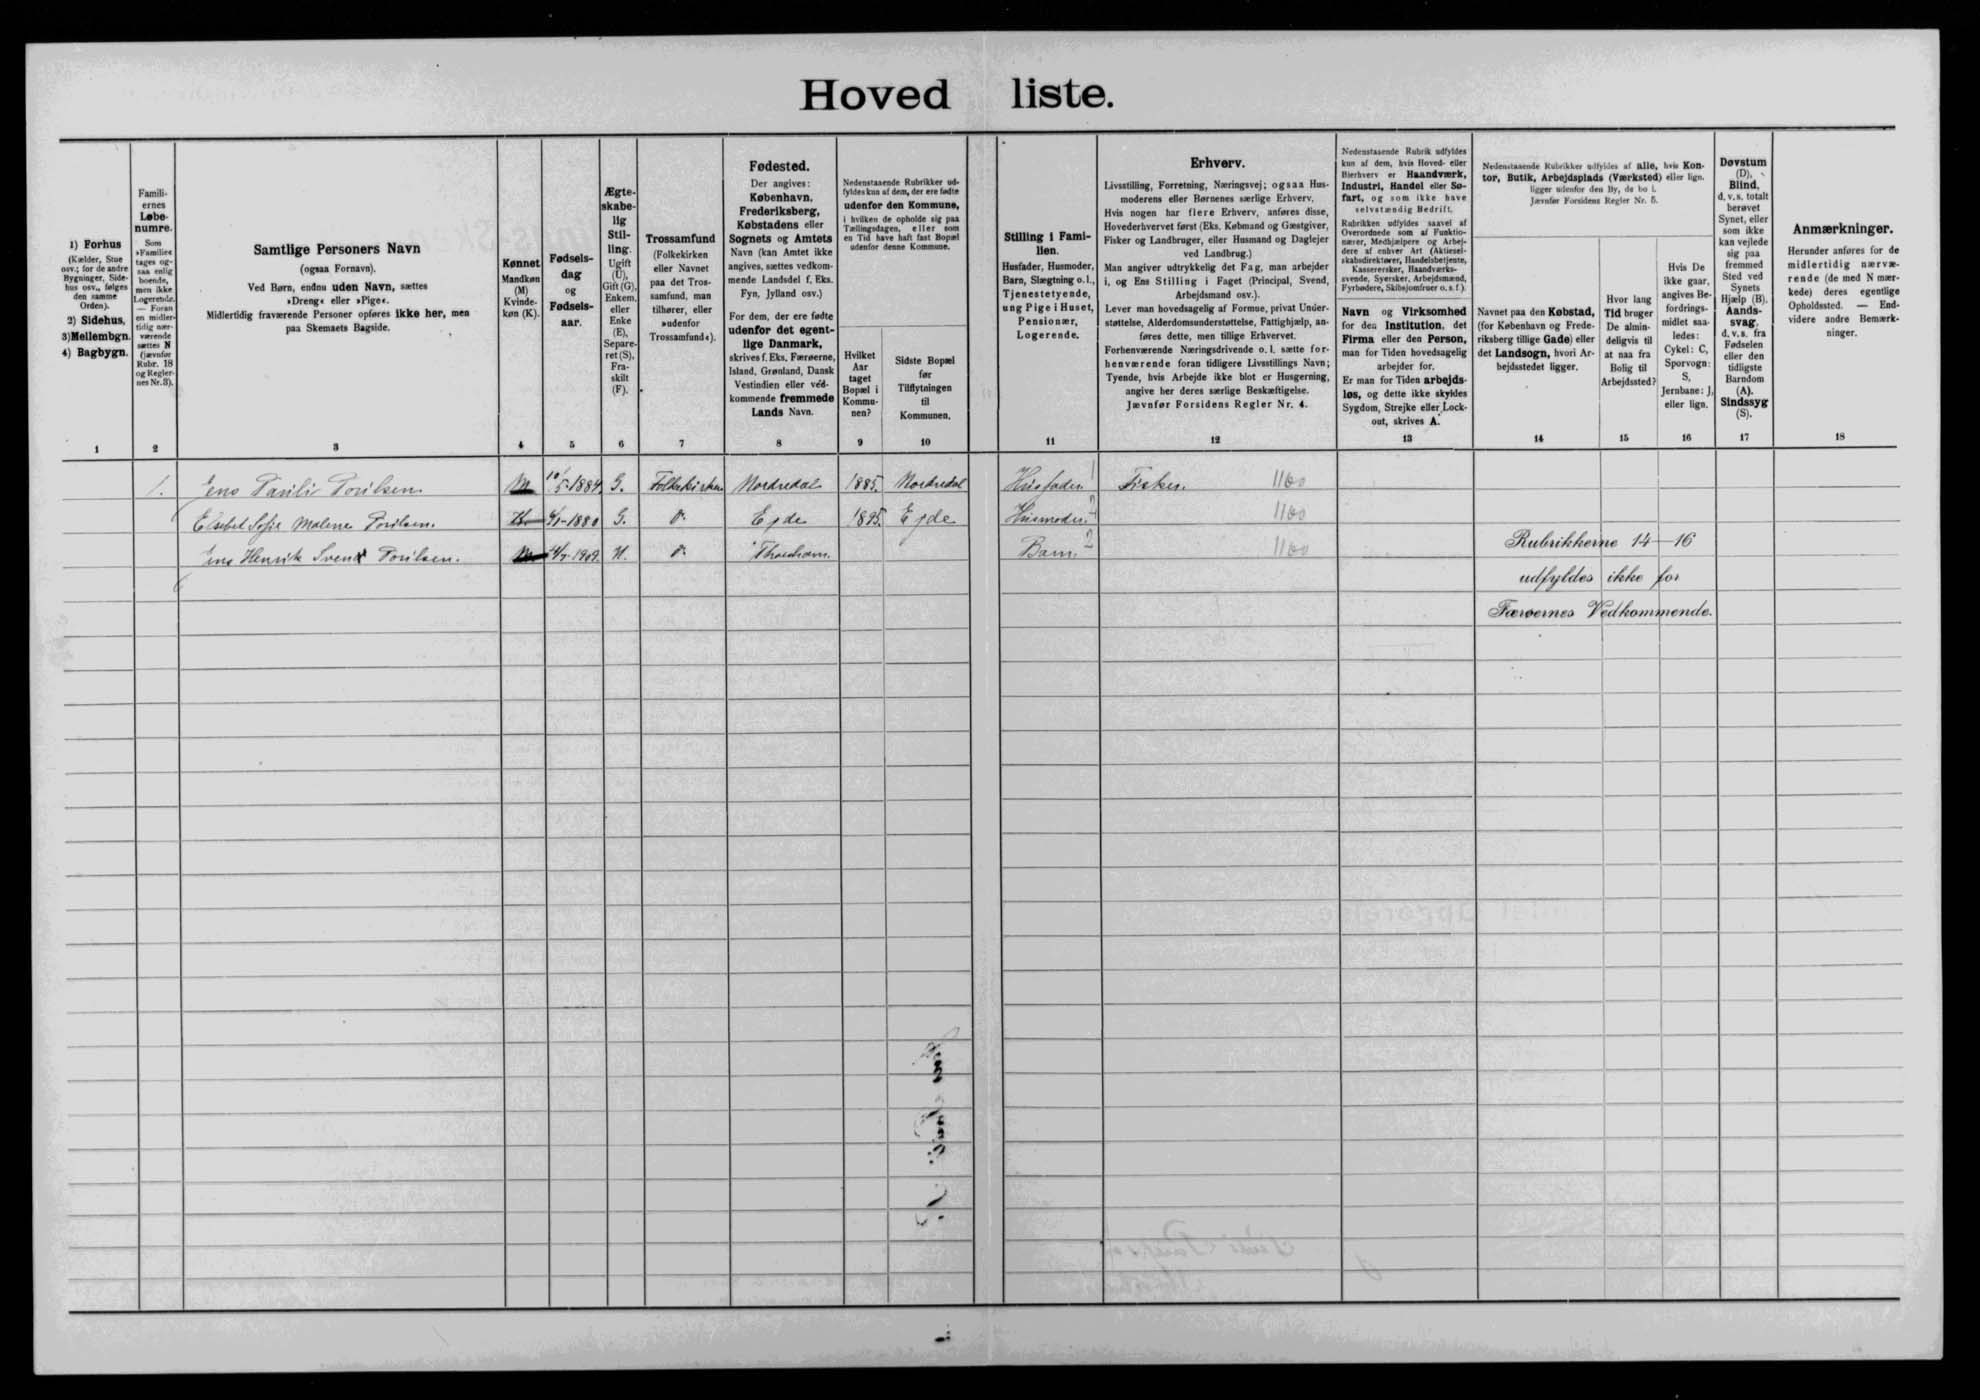 Hoved liste.
1) Forhus
(Kælder, Stue
osv.; for de andre
Bygninger, Side-
hus osv., følges
den samme
Orden).
2) Sidehus,
3) Mellembgn.
4) Bagbygn.
1
Famili-
ernes
Løbe-
numre.
Som
»Familie«
tages og-
saa enlig
boende,
men ikke
Logerende.
— Foran
en midler-
tidig nær-
værende
sættes N
(jævnfør
Rubr. 18
og Regler-
nes Nr. 3).
2
Samtlige Personers Navn
(ogsaa Fornavn).
Ved Børn, endnu uden Navn, sættes
»Dreng« eller »Pige«.
Midlertidig fraværende Personer opføres ikke her, men
paa Skemaets Bagside.
3
Kønnet
Mandkøn
(M)
Kvinde-
køn (K).
4
Fødsels-
dag
og
Fødsels-
aar.
5
Ægte-
skabe-
lig
Stil-
ling.
Ugift
(U),
Gift (G),
Enkem.
eller
Enke
(E),
Separe-
ret (S),
Fra-
skilt
(F).
6
Trossamfund
(Folkekirken
eller Navnet
paa det Tros-
samfund, man
tilhører, eller
»udenfor
Trossamfund«).
7
Fødested.
Der angives:
København,
Frederiksberg,
Købstadens eller
Sognets og Amtets
Navn (kan Amtet ikke
angives, sættes vedkom-
mende Landsdel f. Eks.
Fyn, Jylland osv.)
For dem, der ere fødte
udenfor det egent-
lige Danmark,
skrives f. Eks. Færøerne,
Island, Grønland, Dansk
Vestindien eller ved-
kommende fremmede
Lands Navn.
8
Nedenstaaende Rubrikker ud-
fyldes kun af dem, der ere fødte
udenfor den Kommune,
i hvilken de opholde sig paa
Tællingsdagen, eller som
en Tid have haft fast Bopæl
udenfor denne Kommune.
Hvilket
Aar
taget
Bopæl i
Kommu-
nen?
9
Sidste Bopæl
før
Tilflytningen
til
Kommunen.
10
Stilling i Fami-
lien.
Husfader, Husmoder,
Barn, Slægtning o. l.,
Tjenestetyende,
ung Pige i Huset,
Pensionær,
Logerende.
11
Erhverv.
Livsstilling, Forretning, Næringsvej; ogsaa Hus-
moderens eller Børnenes særlige Erhverv.
Hvis nogen har flere Erhverv, anføres disse,
Hovederhvervet først (Eks. Købmand og Gæstgiver,
Fisker og Landbruger, eller Husmand og Daglejer
ved Landbrug.)
Man angiver udtrykkelig det Fag, man arbejder
i, og Ens Stilling i Faget (Principal, Svend,
Arbejdsmand osv.).
Lever man hovedsagelig af Formue, privat Under-
støttelse, Alderdomsunderstøttelse, Fattighjælp, an-
føres dette, men tillige Erhvervet.
Forhenværende Næringsdrivende o. l. sætte for-
henværende foran tidligere Livsstillings Navn;
Tyende, hvis Arbejde ikke blot er Husgerning,
angive her deres særlige Beskæftigelse.
Jævnfør Forsidens Regler Nr. 4.
12
Nedenstaaende Rubrik udfyldes
kun af dem, hvis Hoved- eller
Bierhverv er Haandværk,
Industri, Handel eller Sø-
fart, og som ikke have
selvstændig Bedrift.
Rubrikken udfyldes saavel af
Overordnede som af Funktio-
nærer, Medhjælpere og Arbej-
dere af enhver Art (Aktiesel-
skabsdirektører, Handelsbetjente,
Kasserersker, Haandværks-
svende, Syersker, Arbejdsmænd,
Fyrbødere, Skibsjomfruer o. s. f.).
Navn og Virksomhed
for den Institution, det
Firma eller den Person,
man for Tiden hovedsagelig
arbejder for.
Er man for Tiden arbejds-
løs, og dette ikke skyldes
Sygdom, Strejke eller Lock-
out, skrives A.
13
Nedenstaaende Rubrikker udfyldes af alle, hvis Kon-
tor, Butik, Arbejdsplads (Værksted) eller lign.
ligger udenfor den By, de bo i.
Jævnfør Forsidens Regler Nr. 5.
Navnet paa den Købstad,
(for København og Frede-
riksberg tillige Gade) eller
det Landsogn, hvori Ar-
bejdsstedet ligger.
14
Hvor lang
Tid bruger
De almin-
deligvis til
at naa fra
Bolig til
Arbejdssted?
15
Hvis De
ikke gaar,
angives Be-
fordrings-
midlet saa-
ledes:
Cykel: C,
Sporvogn:
S,
Jernbane: J,
eller lign.
16
Døvstum
(D),
Blind,
d. v. s. totalt
berøvet
Synet, eller
som ikke
kan vejlede
sig paa
fremmed
Sted ved
Synets
Hjælp (B),
Aands-
svag,
d. v. s. fra
Fødselen
eller den
tidligste
Barndom
(A),
Sindssyg
(S).
17
Anmærkninger.
Herunder anføres for de
midlertidig nærvæ-
rende (de med N mær-
kede) deres egentlige
Opholdssted. — End-
videre andre Bemærk-
ninger.
18
1. Jens Pauli Poulsen M 10/5-1884 G. Folkekirken Nordredal 1885. Nordredal Husfader 1 Fisker. 1100
Elsebet Sofie Malene Poulsen. K 6/1-1880 G. Ejde 1895. Ejde Husmoder. 1100
Jens Henrik Svend Poulsen. M 1909. U. Thorshavn. Barn. 2 1100
Rubrikkerne 14—16
udfyldes ikke for
Færøernes Vedkommende.